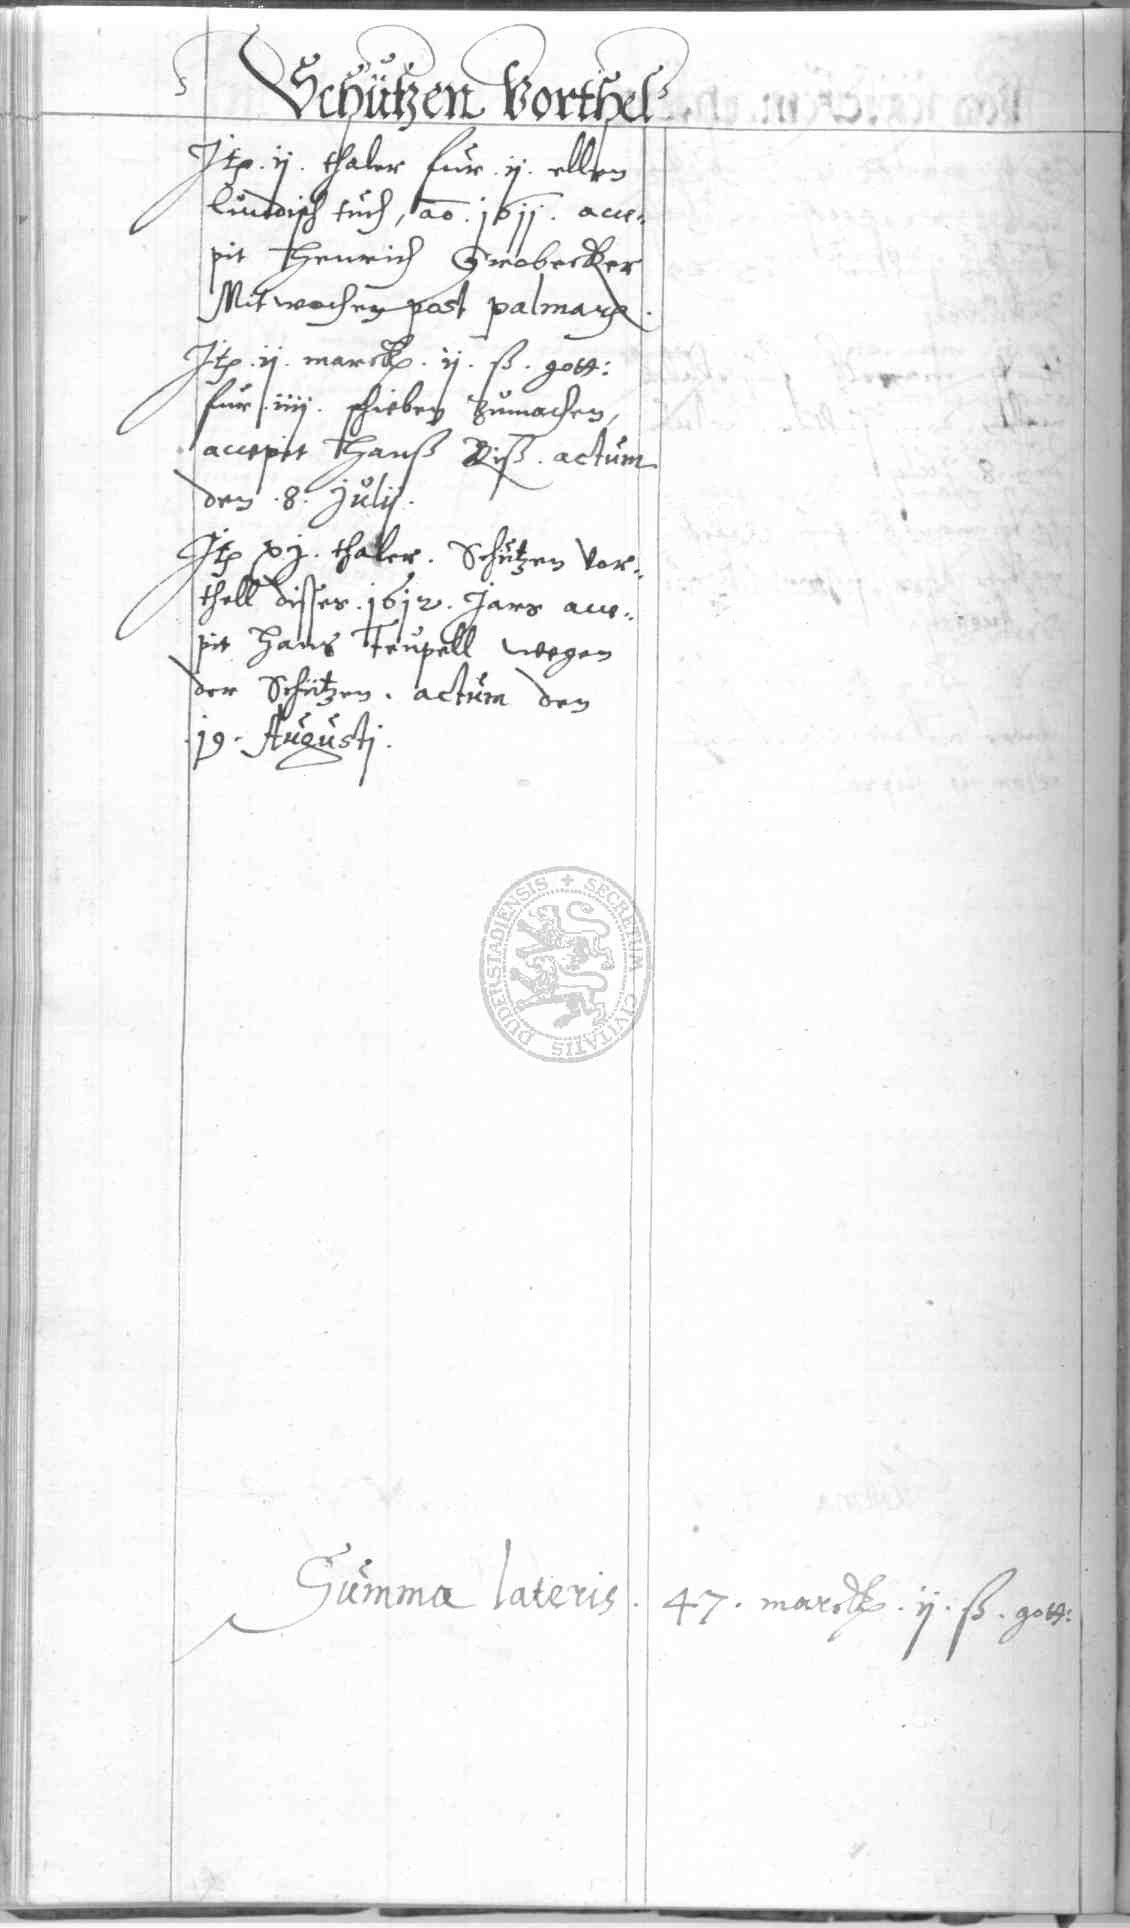 Schützen Vorthel
Itp. ij. thaler für. ij. ellen
lundisch tuch, ao. 1611. acce-
pit Henrich Grobecker
Mitwochen post palmarum.
Itp. ij. marck. ij. ß. gott:
für. iiij. schieben zumachen,
accepit Hanß Riß. actum
den. 8. Julij.
Itp xj. thaler. Schützen Vor-
thell disses. 1612. Jars acce-
pit Hans Teupell wegen
der Schützen. actum den
19. Augusti.
SECRETUM CIVITATIS DUDERSTADIENSIS
Summa lateris. 47. marck. ij. ß. gott: